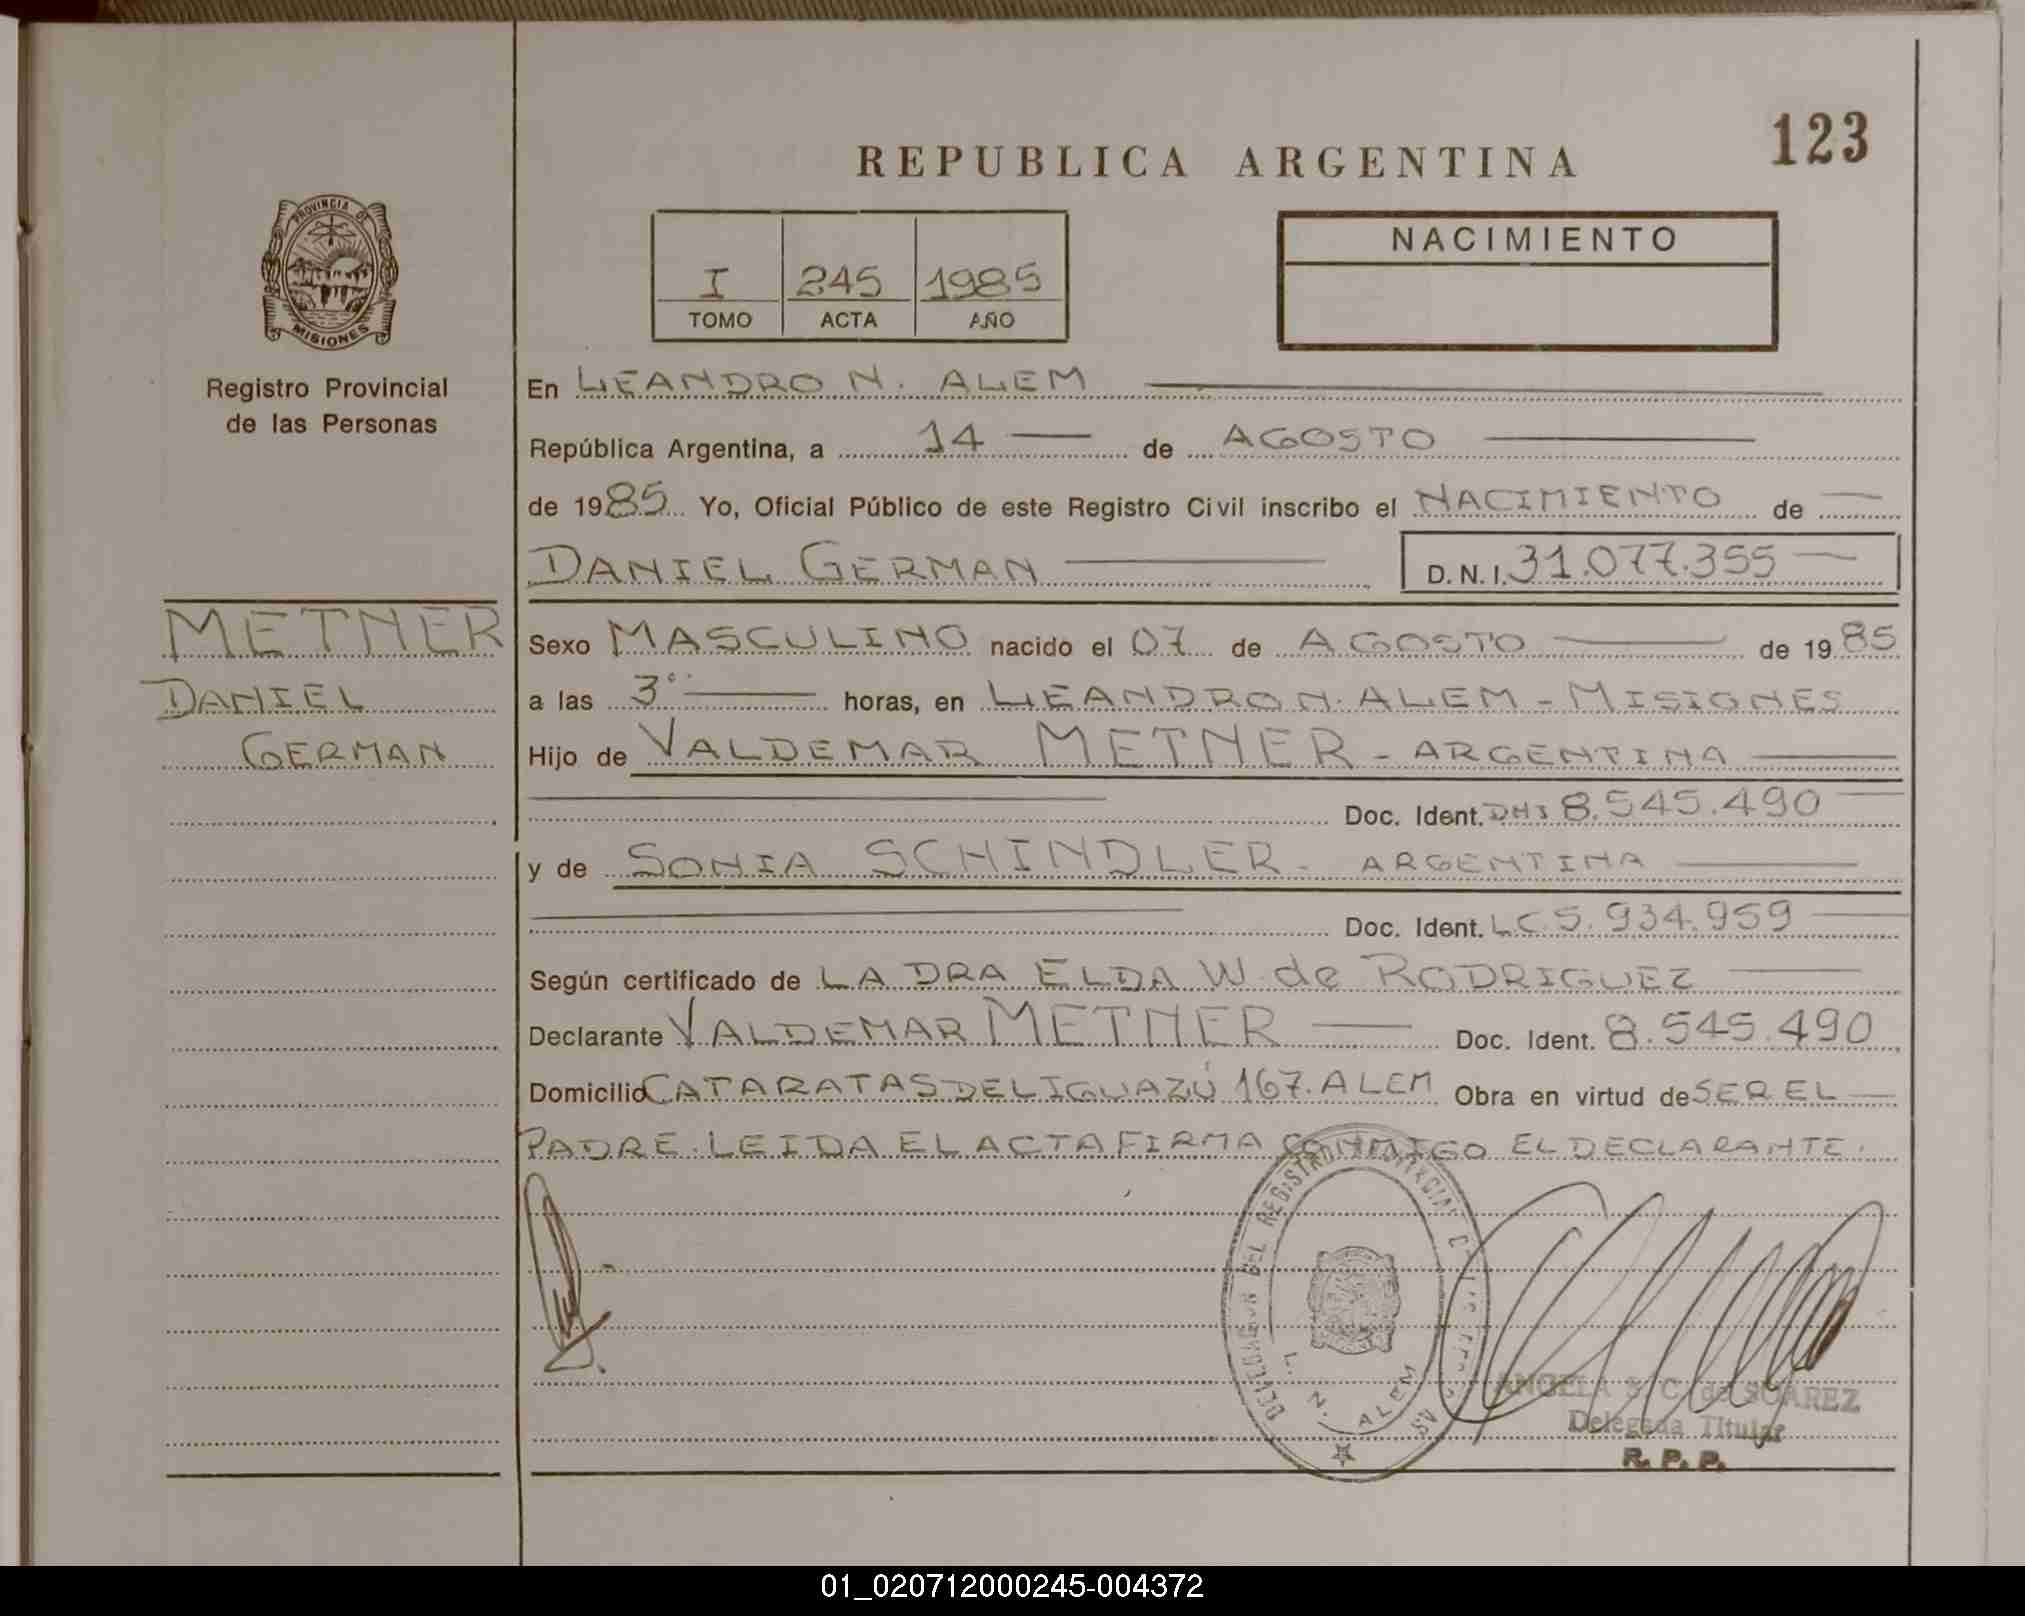 123
REPUBLICA ARGENTINA
PROVINCIA DE
MISIONES
Registro Provincial
de las Personas
I 245 1985
TOMO ACTA AÑO
NACIMIENTO
En LEANDRO N. ALEM
República Argentina, a 14 de AGOSTO
de 1985 Yo, Oficial Público de este Registro Civil inscribo el NACIMIENTO de
DANIEL GERMAN D.N.I. 31.077.355
METNER
DANIEL
GERMAN
Sexo MASCULINO nacido el 07 de AGOSTO de 1985
a las 3°° horas, en LEANDRO N. ALEM - MISIONES
Hijo de VALDEMAR METNER - ARGENTINA
Doc. Ident. DNI 8.545.490
y de SONIA SCHINDLER - ARGENTINA
Doc. Ident. LC 5.934.959
Según certificado de LA DRA ELDA W. de RODRIGUEZ
Declarante VALDEMAR METNER Doc. Ident. 8.545.490
Domicilio CATARATAS DEL IGUAZÚ 167. ALEM Obra en virtud de SER EL
PADRE. LEIDA EL ACTA FIRMA CONMIGO EL DECLARANTE.
DELEGACION DEL REGISTRO PROVINCIAL DE LAS PERSONAS
L. N. ALEM
ANGELA S. C. de SUAREZ
Delegada Titular
R. P. P.
01_020712000245-004372